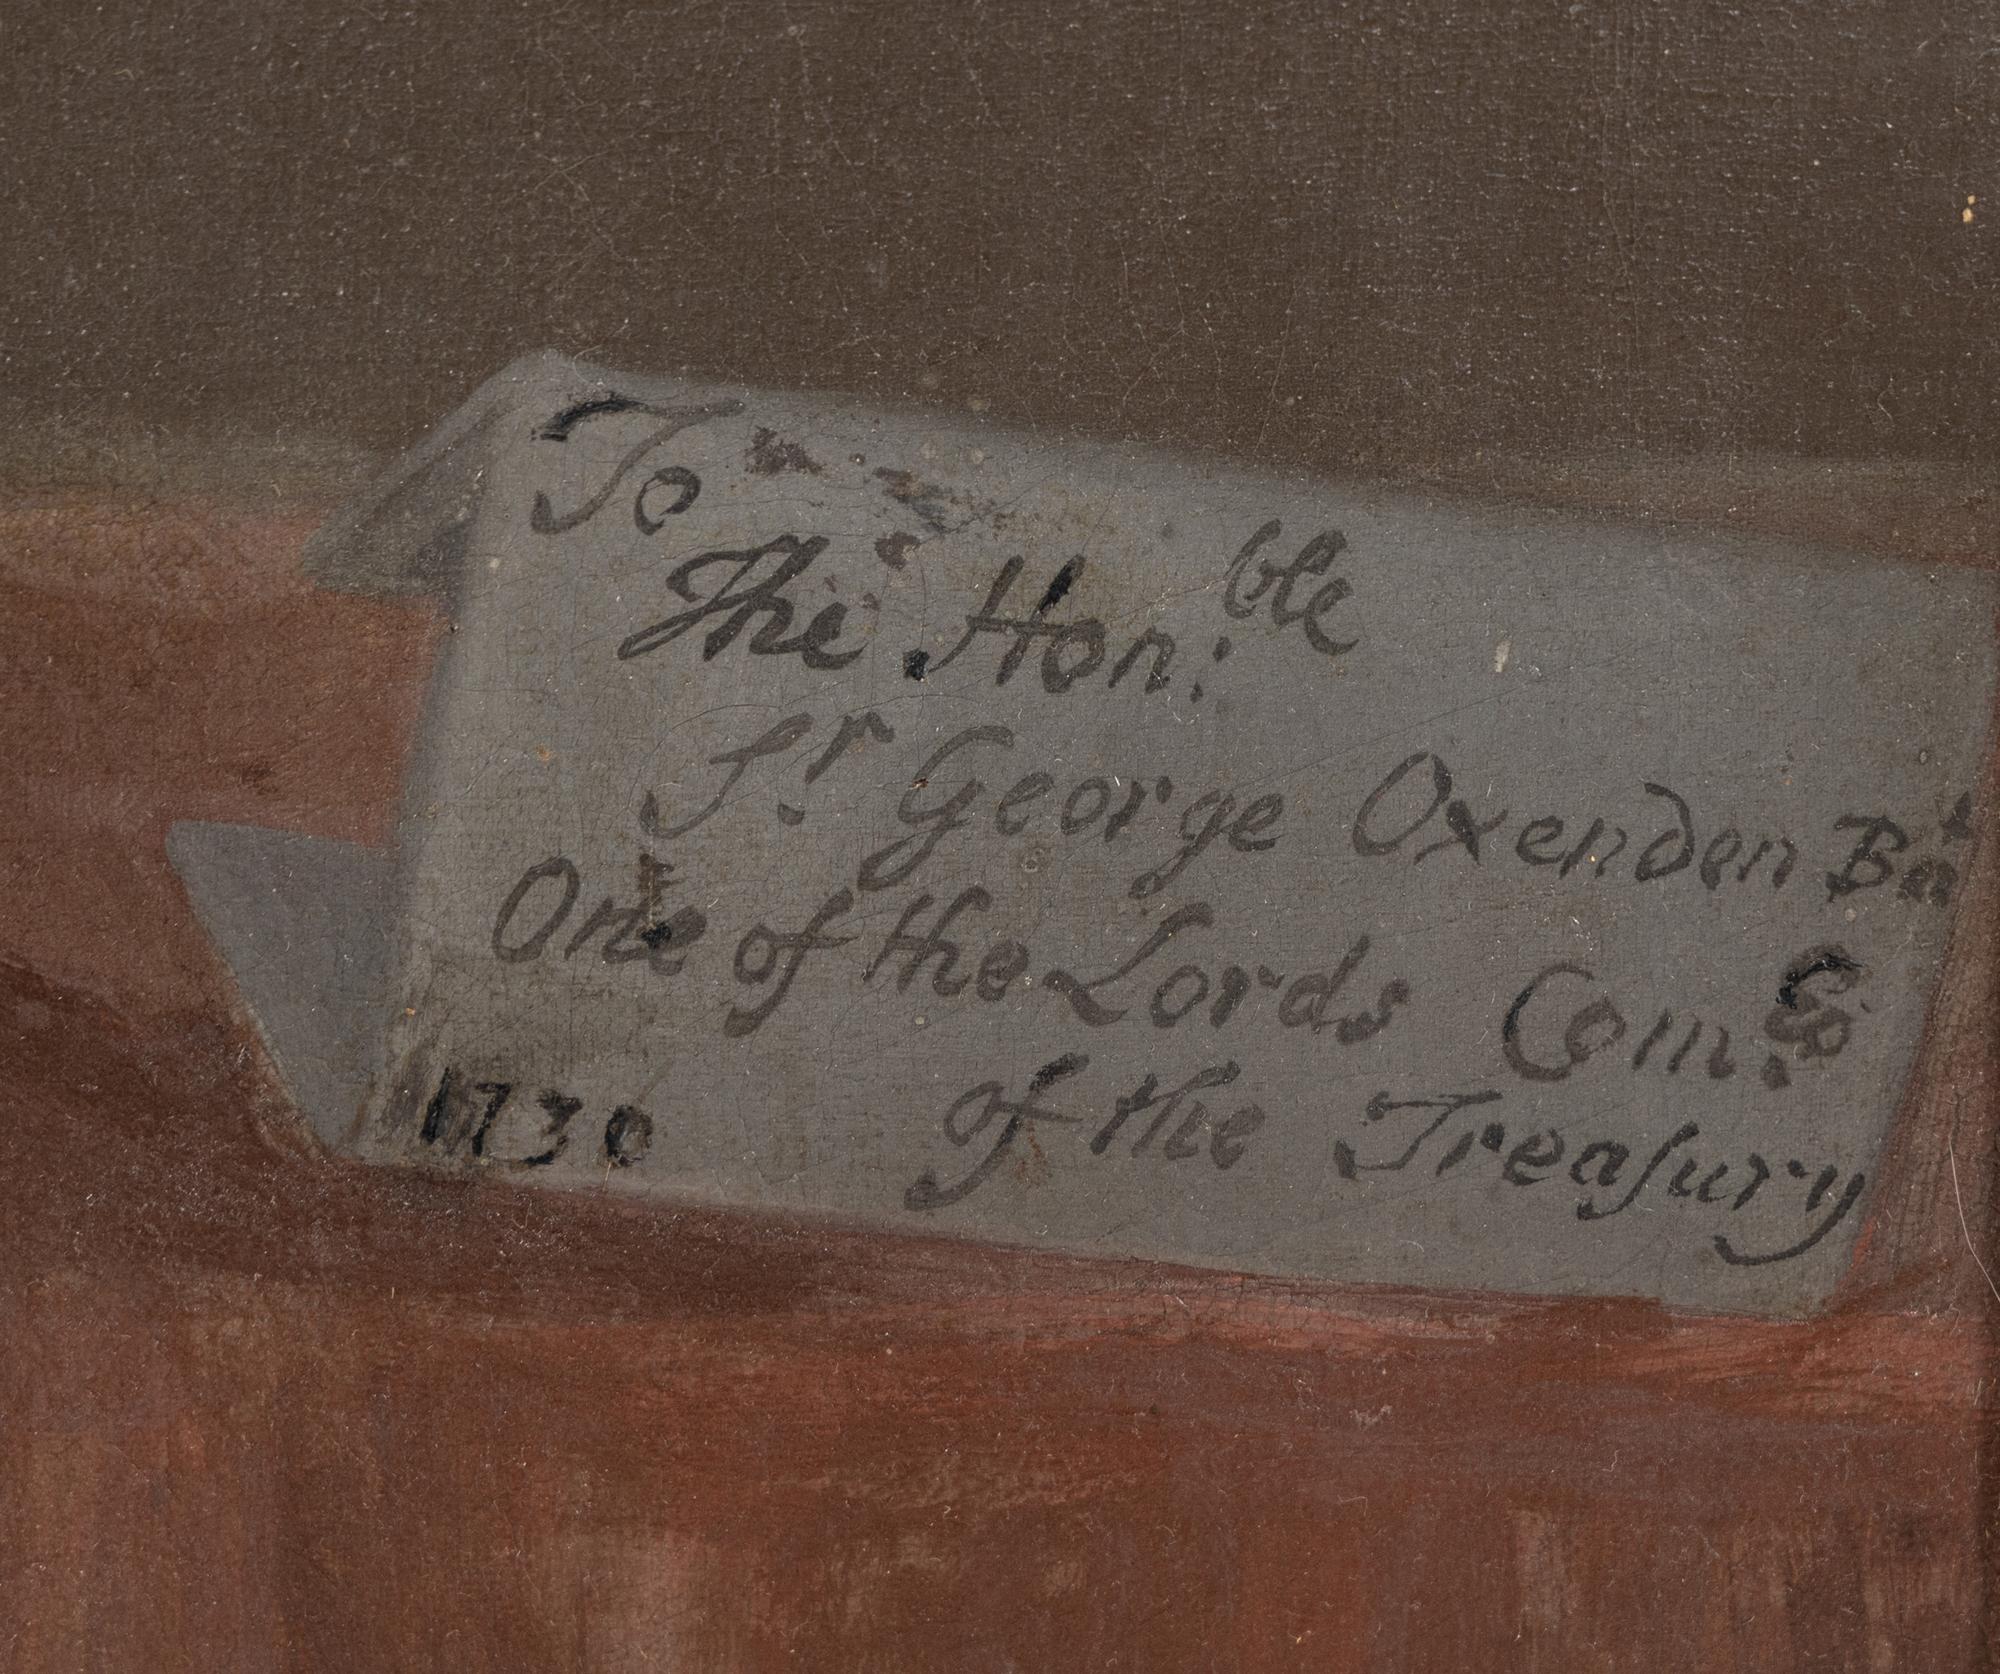 To
The Hon:ble
Sr George Oxenden Bat
One of the Lords Com:
of the Treaſury
1730